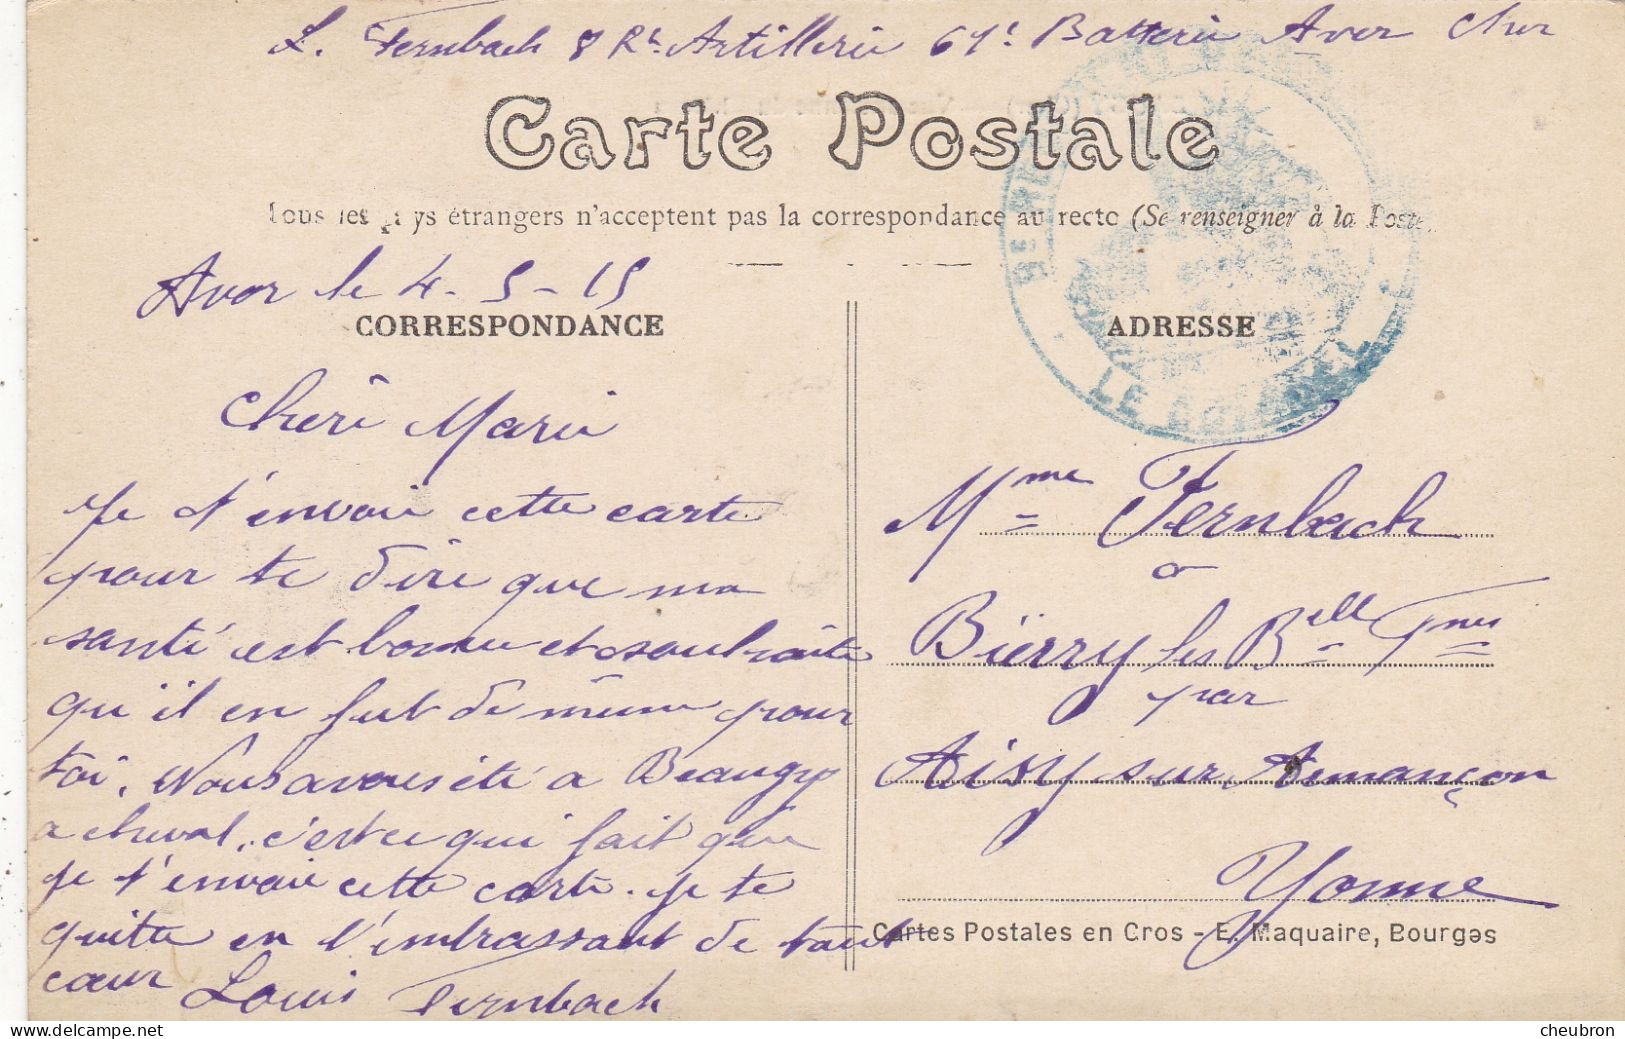 L. Fernbach 8 Rt Artillerie 61e Batterie Avor Cher
Carte Postale
Tous les pays étrangers n'acceptent pas la correspondance au recto (Se renseigner à la Poste)
Avor le 4-5-15
CORRESPONDANCE
Cheri Marie
Je t'envoie cette carte
pour te dire que ma
santé est bonne et souhaite
qu'il en fut de même pour
toi. Nous avons été a Beaugy
a cheval, c'est ce qui fait que
je t'envoie cette carte. Je te
quitte en t'embrassant de tout
cœur Louis Fernbach
ADRESSE
LE
Mme Fernbach
a
Bierry les Belle Fnes
par
Aisy sur Armançon
Yonne
Cartes Postales en Gros - E. Maquaire, Bourges
cheubron